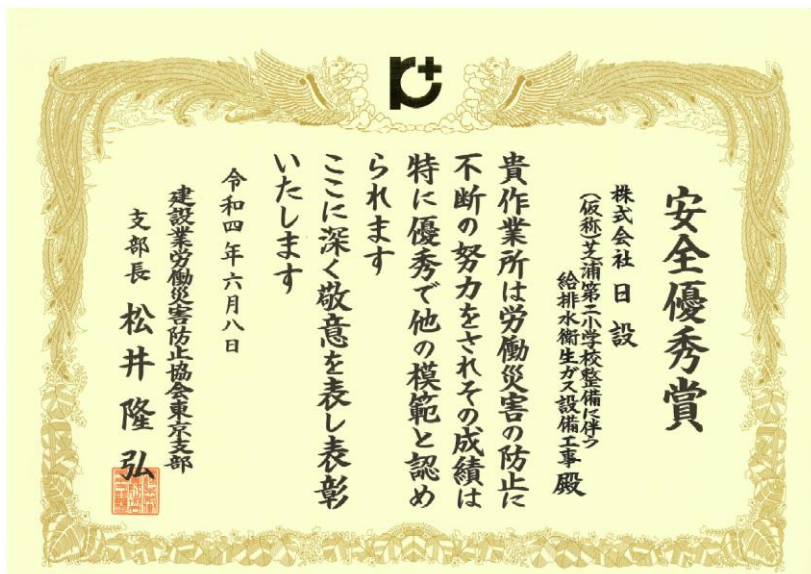 安全優秀賞
株式会社 日設
(仮称)芝浦第二小学校整備に伴う
給排水衛生ガス設備工事 殿
貴作業所は労働災害の防止に
不断の努力をされその成績は
特に優秀で他の模範と認め
られます
ここに深く敬意を表し表彰
いたします
令和四年六月八日
建設業労働災害防止協会東京支部
支部長 松井隆弘